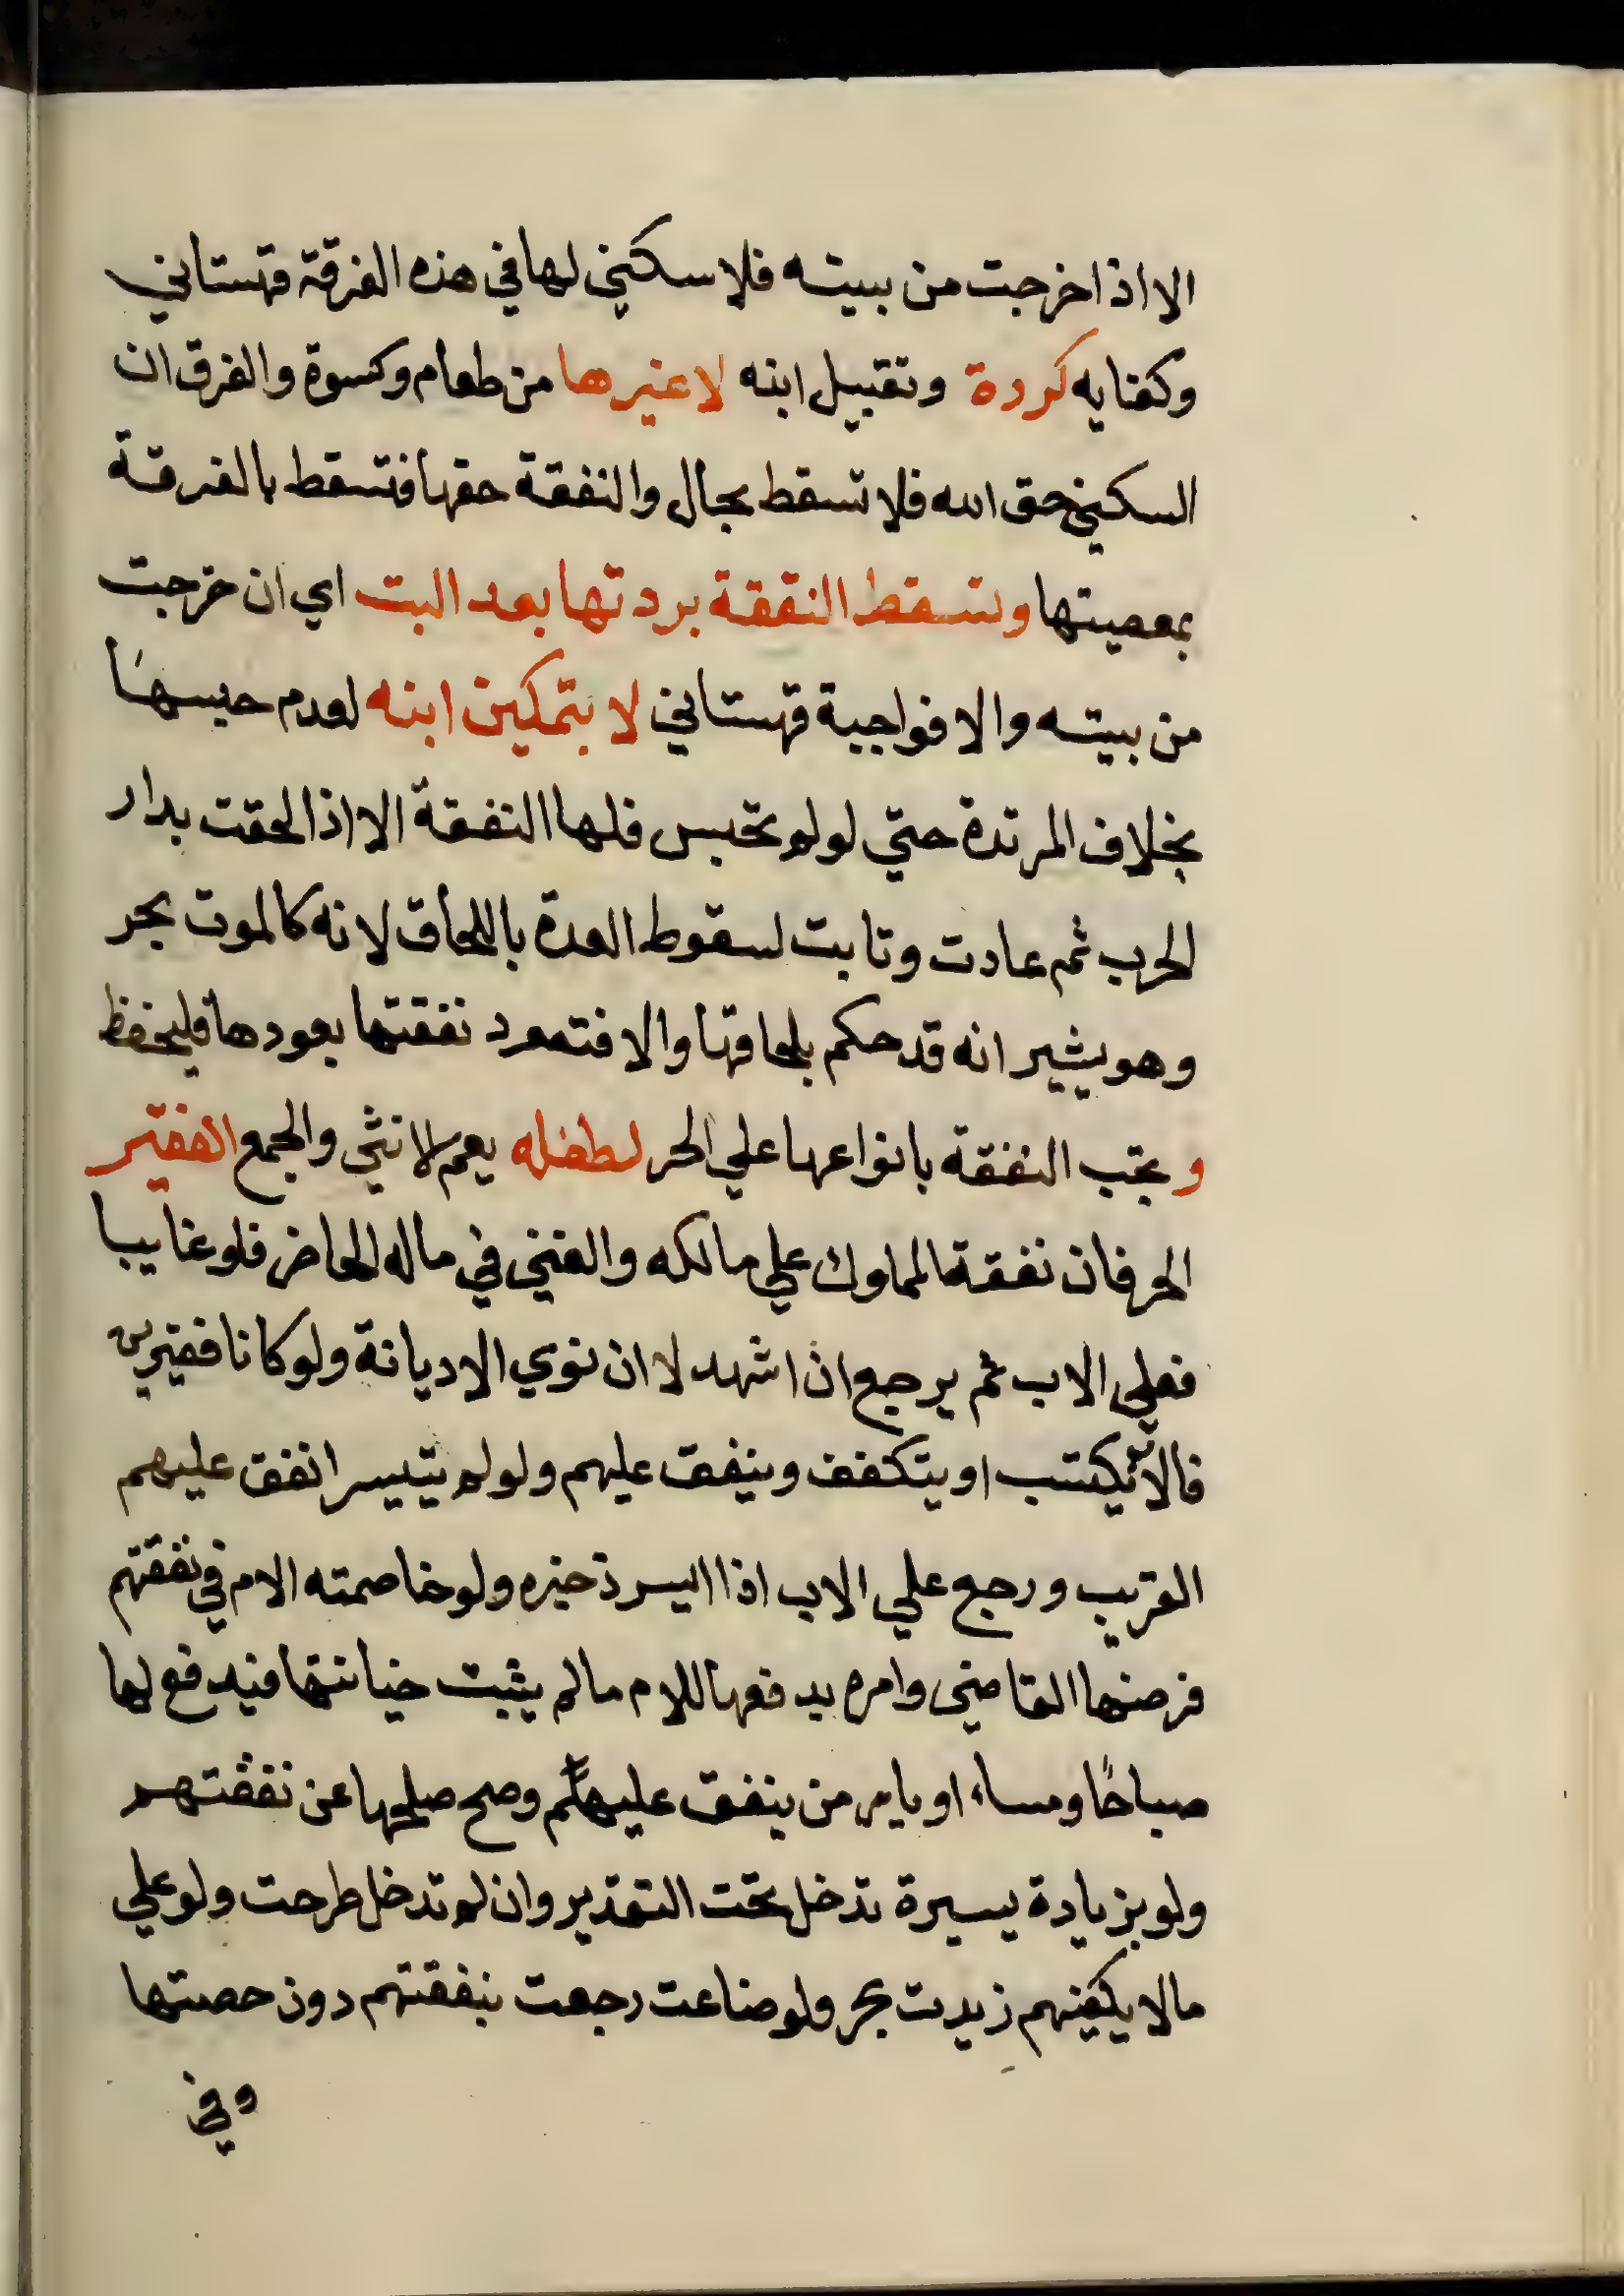 الا اذا خرجت من بيته فلا سكني لها في هذه الفرقة قهستاني
وكفايه كردة وتقبيل ابنه لا غيرها من طعام وكسوة والفرق ان
السكني حق الله فلا تسقط بحال والنفقة حقها فتسقط بالفرقة
بمعصيتها وتسقط النفقة بردتها بعد البت اي ان خرجت
من بيته والا فواجبة قهستاني لا بتمكين ابنه لعدم حبسها
بخلاف المرتدة حتي لو لم تحبس فلها النفقة الا اذا لحقت بدار
الحرب ثم عادت وتابت لسقوط العدة باللحاق لانه كالموت بحر
وهو يشير انه قد حكم بلحاقها والا فتعود نفقتها بعودها فليحفظ
وتجب النفقة بانواعها علي الحر لطفله يعم الانثي والجمع الفقير
الحر فان نفقة المملوك علي مالكه والغني في ماله الحاضر فلو غايبا
فعلي الاب ثم يرجع ان اشهد لا ان نوي الا ديانة ولو كانا فقيرين
فالاب يكتسب او يتكفف وينفق عليهم ولو لم يتيسر انفق عليهم
القريب ورجع علي الاب اذا ايسر ذخيره ولو خاصمته الام في نفقتهم
فرضها القاضي وامره بدفعها للام ما لم يثبت خيانتها فيدفع لها
صباحًا ومساء او يامر من ينفق عليهم وصح صلحها عن نفقتهم
ولو بزيادة يسيرة تدخل تحت التقدير وان لم تدخل طرحت ولو علي
مالا يكفيهم زيدت بحر ولو ضاعت رجعت بنفقتهم دون حصتها
وفي